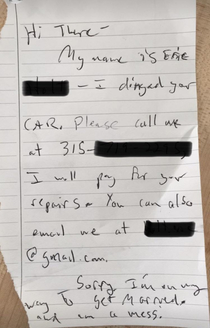 Hi There-
My name is Eric
- I dinged your
CAR. Please call me
at 315-
I will pay for your
repairs. You can also
email me at
@gmail.com.
Sorry I'm on my
way to get married.
and am a mess.